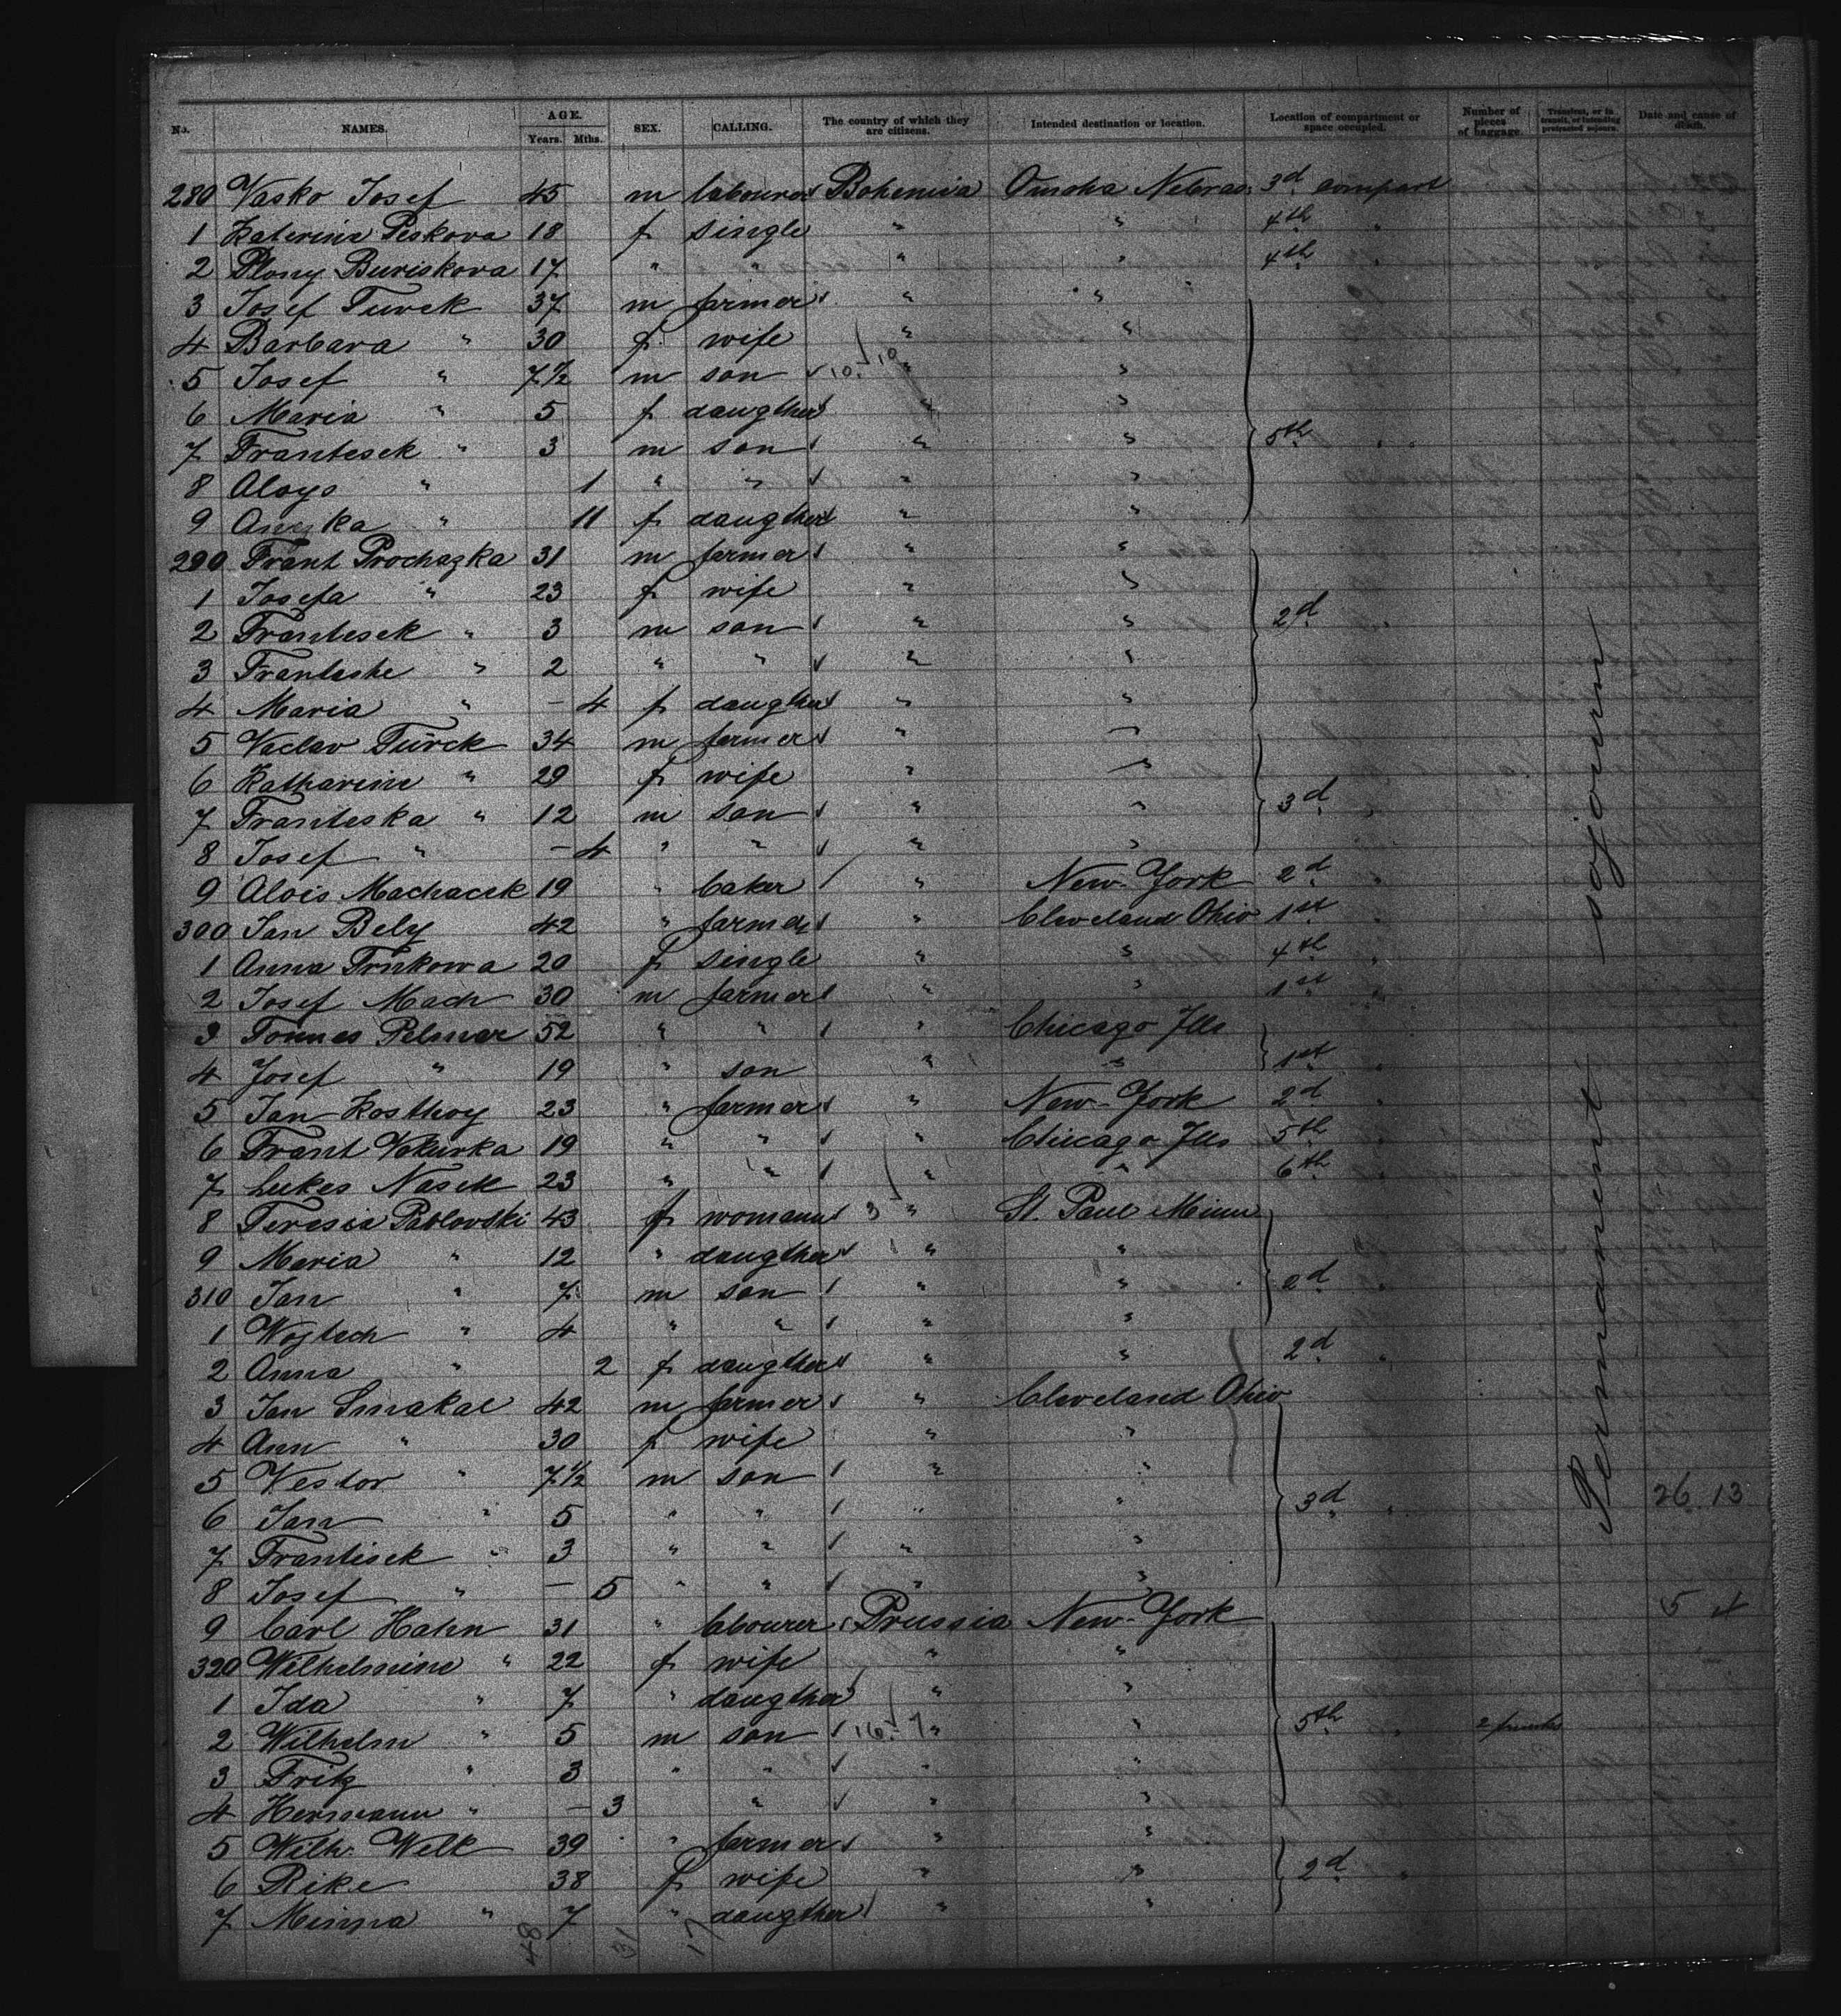 No. NAMES. AGE. Years. Mths. SEX. CALLING. The country of which they are citizens. Intended destination or location. Location of compartment or space occupied. Number of pieces of baggage. Transient, or in transit, or intending protracted sojourn. Date and cause of death.
280 Vasko Josef 45 m labourer Bohemia Omaha Nebras. 3d compart
1 Katerina Peskova 18 f single " " 4th "
2 Buriskova 17 " " " " 4th "
3 Josef Turek 37 m farmer " "
4 Barbara " 30 f wife " "
5 Josef " 7½ m son " "
6 Maria " 5 f daugther " "
7 Frantesek " 3 m son " " 5th "
8 Aloys " 1 " " " "
9 Aneska " 11 f daugther " "
290 Frant Prochazka 31 m farmer " "
1 Josefa " 23 f wife " "
2 Frantesek " 3 m son " " 2d "
3 Franteske " 2 " " " "
4 Maria " - 4 f daugther " "
5 Vaclav Turek 34 m farmer " "
6 Katharine " 29 f wife " "
7 Franteska " 12 m son " " 3d "
8 Josef " - 4 " " " "
9 Alois Machacek 19 " baker " New-York 2d "
300 Jan Bely 42 " farmer " Cleveland Ohio 1st "
1 Anna Trnkowa 20 f single " " 4th "
2 Josef Mach 30 m farmer " " 1st "
3 Tomes Pelmar 52 " " " Chicago Ills
4 Josef " 19 " son " " 1st "
5 Jan Kosthoy 23 " farmer " New-York 2d "
6 Frant Vokurka 19 " " " Chicago Ills 5th "
7 Lukes Nasek 23 " " " " 6th "
8 Teresia Pavlovski 43 f womann " St. Paul Minn
9 Maria " 12 " daugther " "
310 Jan " 7 m son " " 2d "
1 Wojtech " 4 " " " "
2 Anna " 2 f daugther " " 2d "
3 Jan Smakal 42 m farmer " Cleveland Ohio
4 Ann " 30 f wife " "
5 Vestor " 7½ m son " "
6 Jan " 5 " " " " 3d " 26 13
7 Frantisek " 3 " " " "
8 Josef " - 5 " " " "
9 Carl Hahn 31 " labourer Prussia New-York 5
320 Wilhelmine " 22 f wife " "
1 Ida " 7 " daugther " "
2 Wilhelm " 5 m son " " 5th "
3 Fritz " 3 " " " "
4 Hermann " - 3 " " "
5 Wilh. Welk 39 " farmer " "
6 Rike 38 f wife " " 2d "
7 Minna " 7 " daugther " "
Permanent sojourn